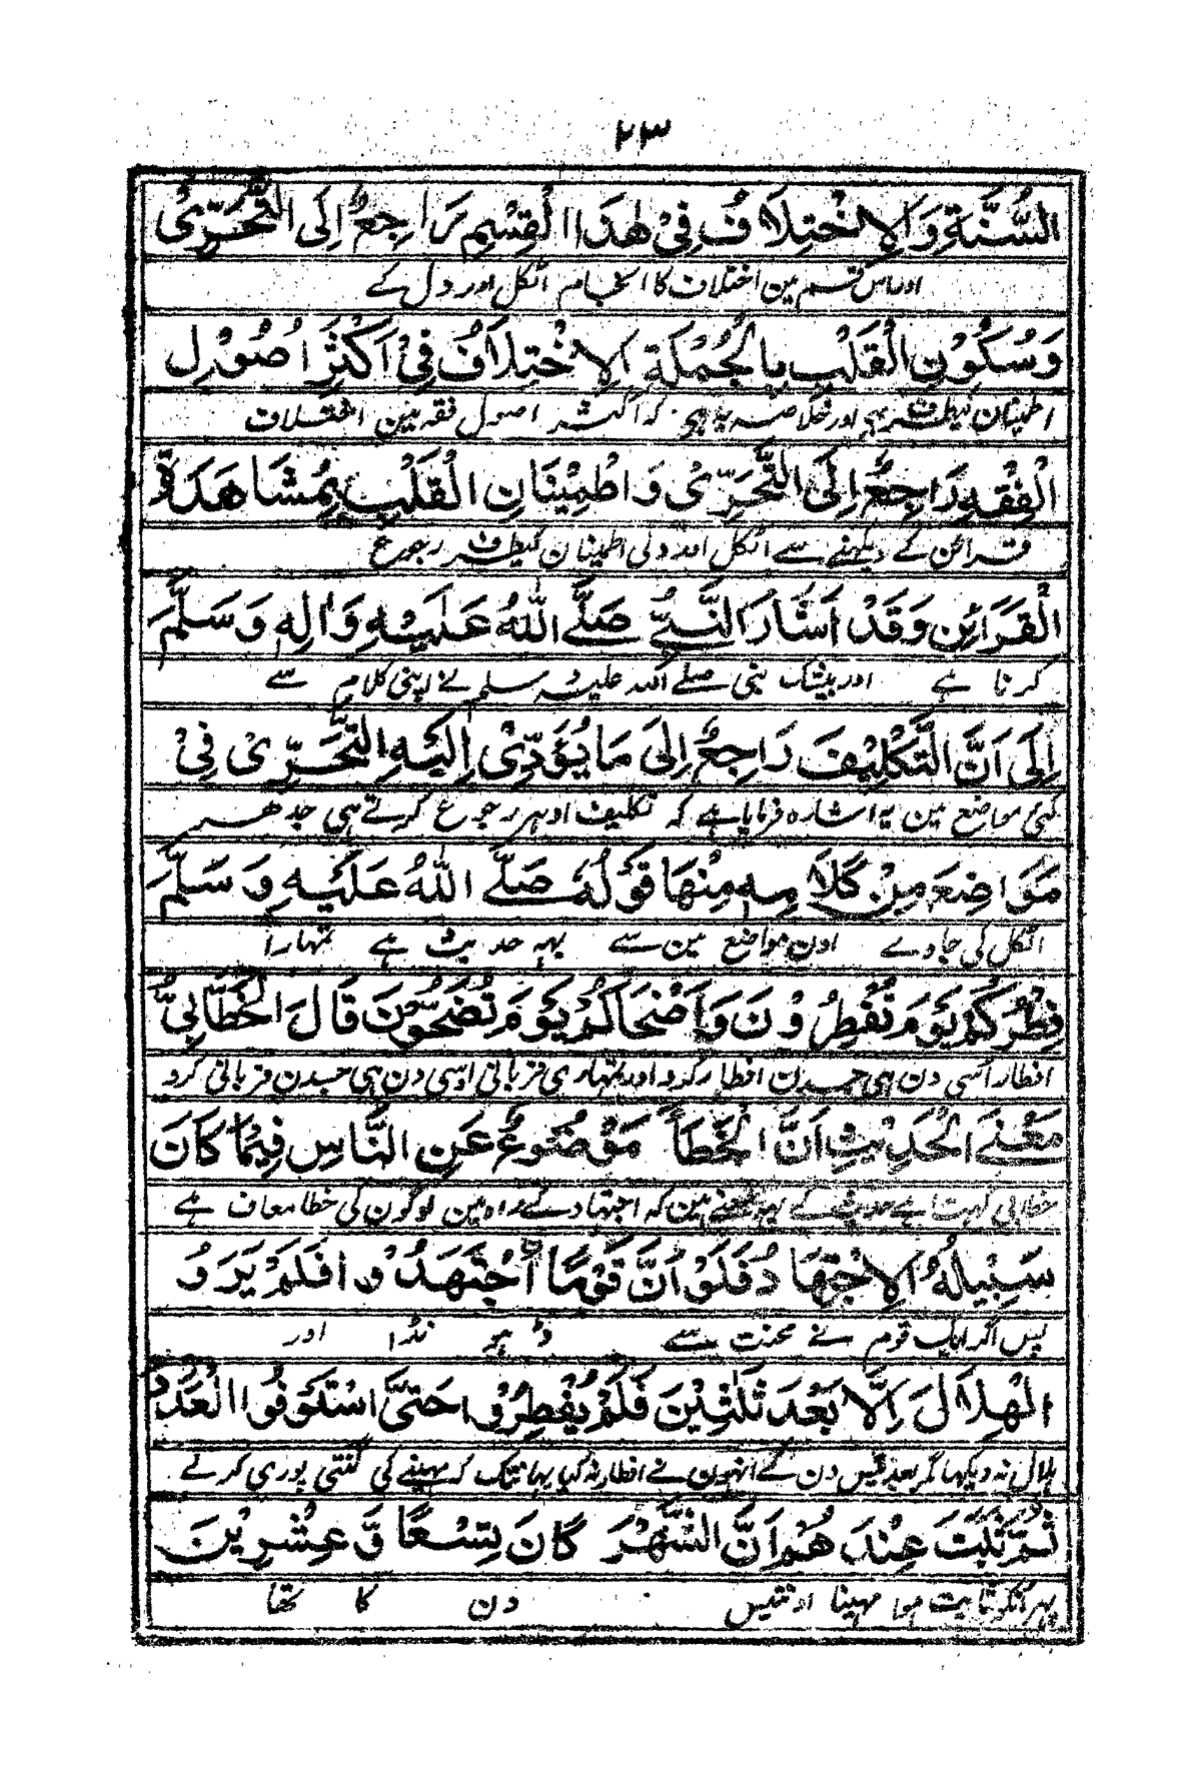 ۲۳
السُّنَّةِ وَالِاخْتِلَافُ فِیْ هٰذَا الْقِسْمِ رَاجِعٌ اِلَی التَّحَرِّیْ
اور اس قسم مین اختلاف کا انجام اٹکل اور دل کے
وَسُكُوْنِ الْقَلْبِ بِالْجُمْلَةِ الِاخْتِلَافُ فِیْ اَكْثَرِ اُصُوْلِ
اطمینان کیطرف ہی اور خلاصہ یہ ہی کہ اکثر اصول فقہ مین اختلاف
الْفِقْهِ رَاجِعٌ اِلَی التَّحَرِّیْ وَاطْمِیْنَانِ الْقَلْبِ بِمُشَاهَدَةِ
قرائن کے دیکھنے سے اٹکل اور دلی اطمینان کیطرف رجوع
الْقَرَائِنِ وَقَدْ اَشَارَ النَّبِیُّ صَلَّے اللّٰهُ عَلَیْهِ وَاٰلِهٖ وَسَلَّمَ
کرتا ہے اور بیشک نبی صلے اللہ علیہ وسلم نے اپنی کلام سے
اِلٰی اَنَّ التَّكْلِیْفَ رَاجِعٌ اِلٰی مَا یُؤَدِّیْ اِلَیْهِ التَّحَرِّیْ فِیْ
کئی مواضع مین یہ اشارہ فرمایا ہے کہ تکلیف اودہر رجوع کرتے ہی جدھر
مَوَاضِعَ مِنْ كَلَامِهٖ مِنْهَا قَوْلُهٗ صَلَّے اللّٰهُ عَلَیْهِ وَسَلَّمَ
اٹکل لی جاوے اون مواضع مین سے یہہ حدیث ہے تمہارا
فِطْرُكُمْ یَوْمَ تُفْطِرُوْنَ وَاَضْحَاكُمْ یَوْمَ تُضَحُّوْنَ قَالَ الْخَطَّابِیُّ
افطار اُسی دن ہی جسدن افطار کرو اور تمہاری قربانی اوسی دن ہی جسدن قربانی کرو
مَعْنَے الْحَدِیْثِ اَنَّ الْخَطَأَ مَوْضُوْعٌ عَنِ النَّاسِ فِیْمَا كَانَ
خطابی کہتا ہے حدیث کے یہہ معنے ہین کہ اجتہاد کے راہ مین لوگون کی خطا معاف ہے
سَبِیْلُهُ الِاجْتِهَادُ فَلَوْ اَنَّ قَوْمًا اجْتَهَدُوْا فَلَمْ یَرَوُ
پس اگر ایک قوم نے محنت سے ڈہونڈا اور
الْهِلَالَ اِلَّا بَعْدَ ثَلٰثِیْنَ فَلَمْ یُفْطِرُوْا حَتّٰی اسْتَوْفُوا الْعَدَدَ
ہلال نہ دیکھا مگر بعد تیس دن کے انہون نے افطار نہ کیا یہانتک کہ مہینے کی گنتی پوری کرتے
ثُمَّ ثَبَتَ عِنْدَ هُمْ اَنَّ الشَّهْرَ كَانَ تِسْعًا وَّ عِشْرِیْنَ
پہر انکو ثابت ہوا مہینا اونتیس دن کا تھا